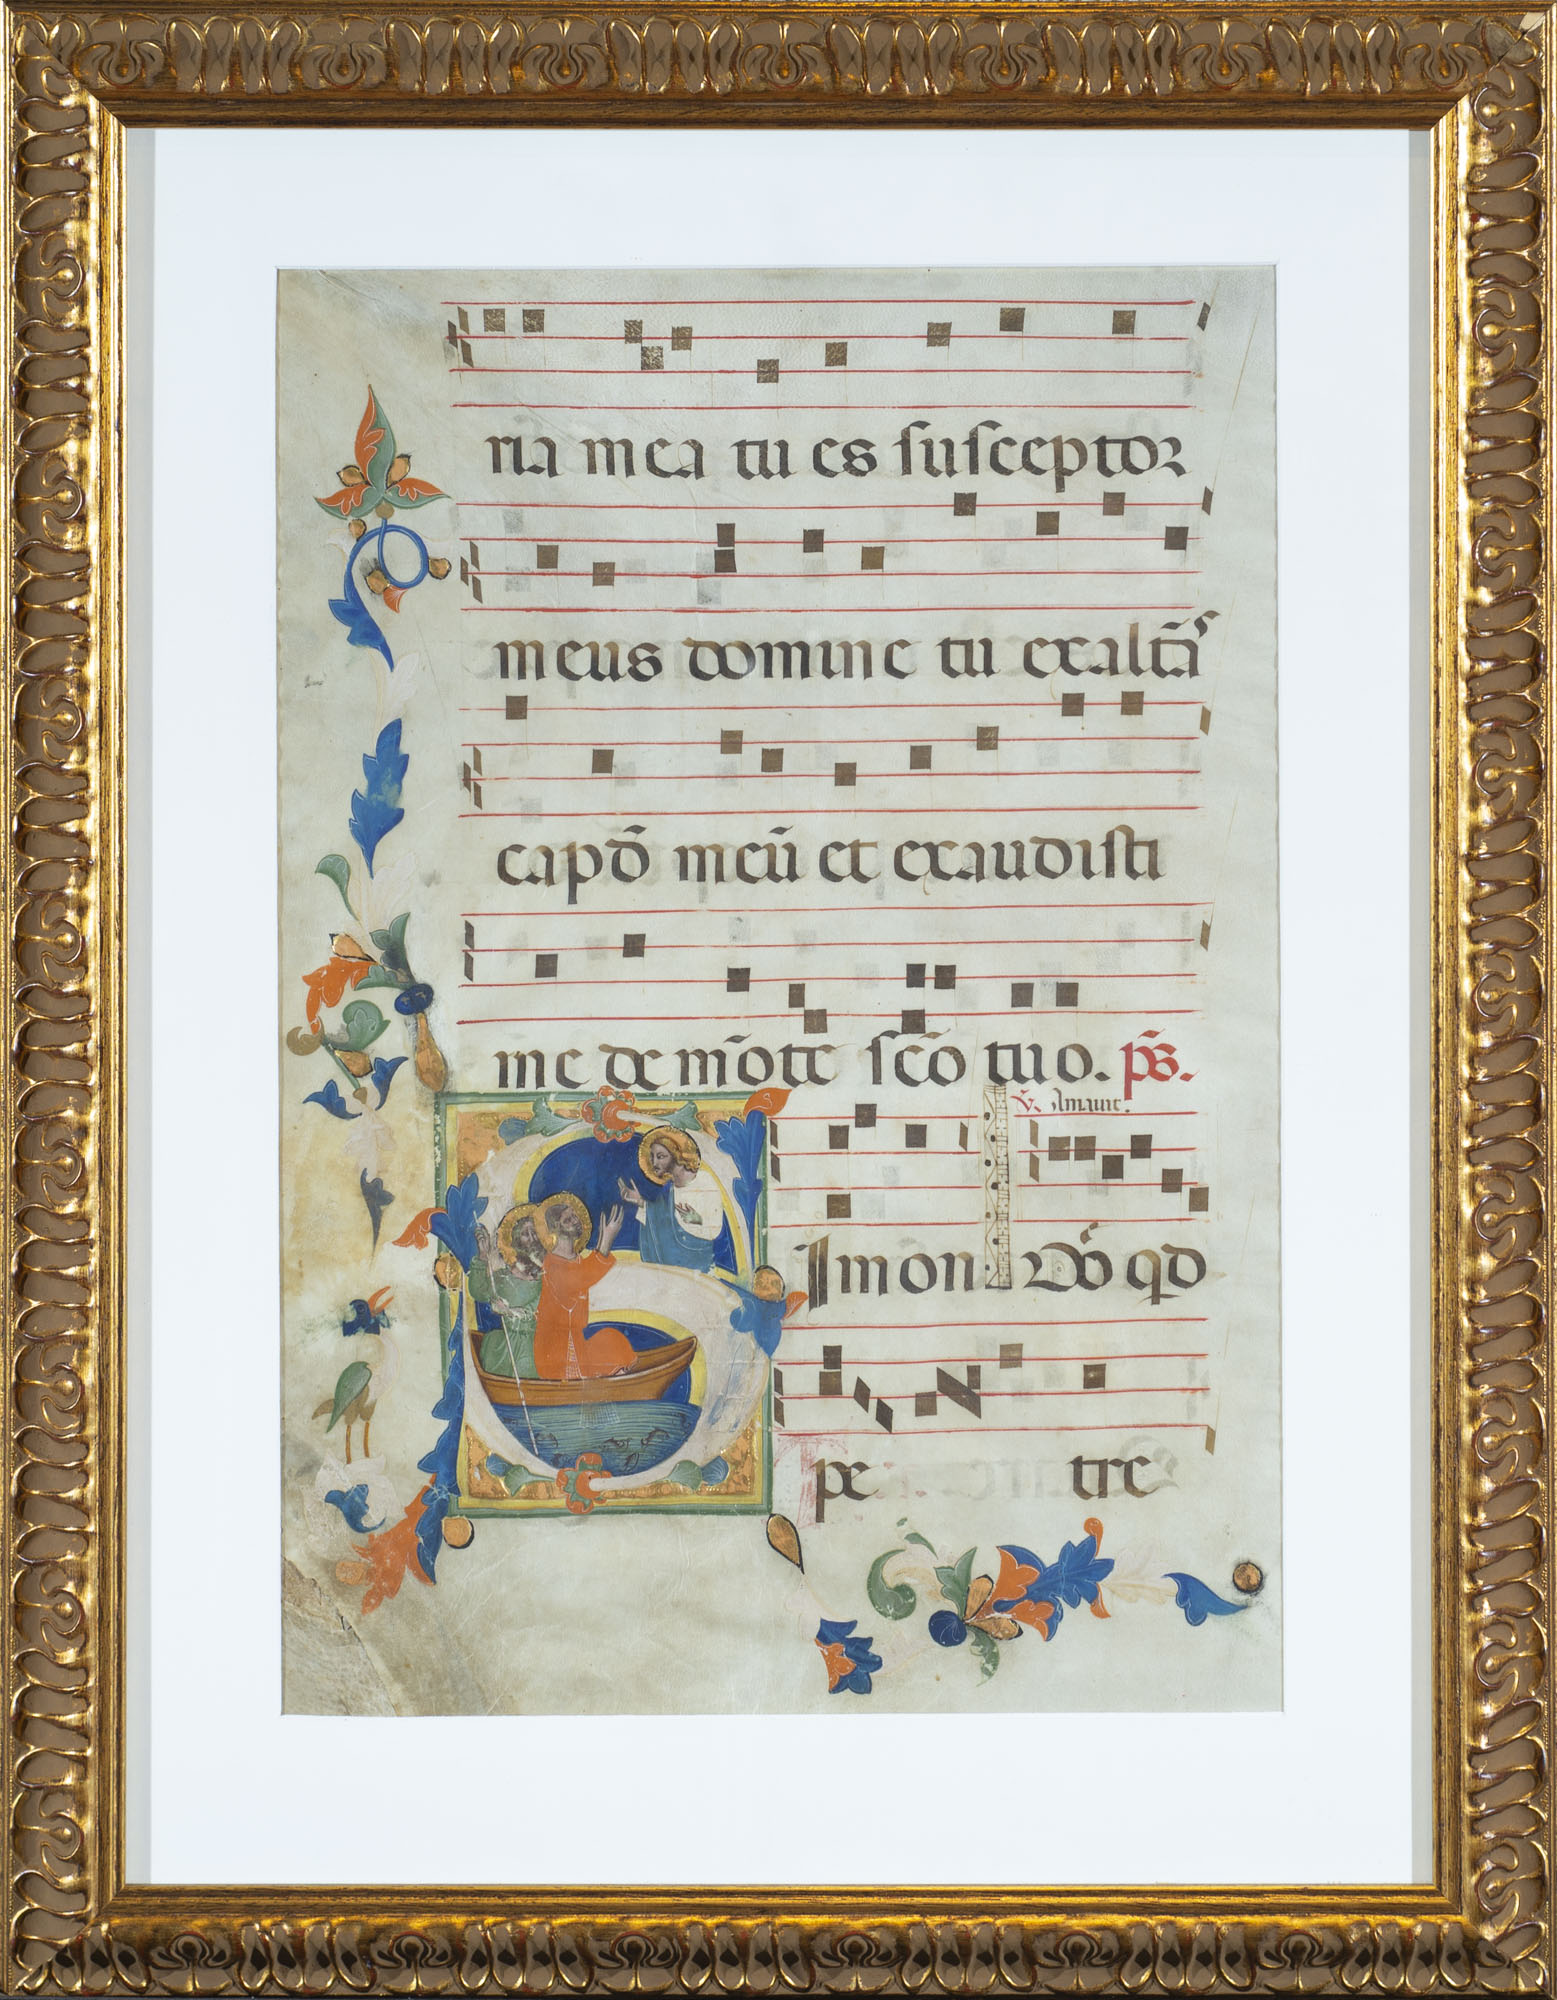 ria mea tu es susceptor
meus domine tu exaltas
capđ meū et exaudisti
me de mōte scō tuo. ps.
v. Amauit.
Simon
pe tre